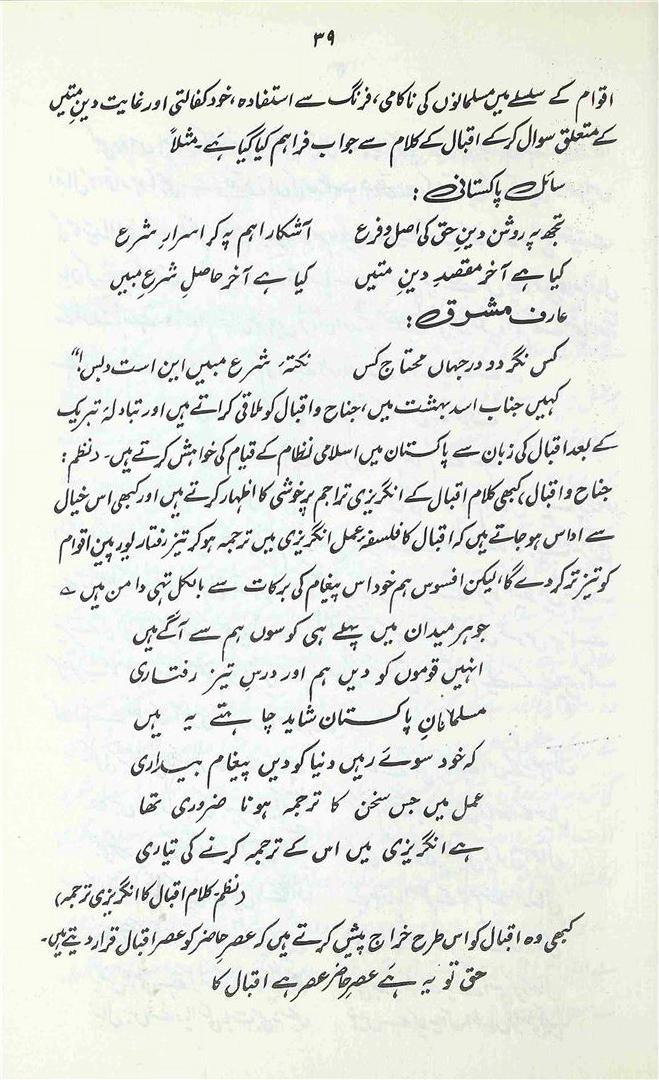 ۳۹
اقوام کے سلسلے میں مسلمانوں کی ناکامی، فرنگ سے استفادہ، خود کفالتی اور غایت دینِ متیں
کے متعلق سوال کر کے اقبال کے کلام سے جواب فراہم کیا گیا ہے۔ مثلاً
سائل پاکستانی:
تجھ پہ روشن دینِ حق کی اصل و فرع آشکارا ہم پہ کر اسرارِ شرع
کیا ہے آخر مقصدِ دینِ متیں کیا ہے آخر حاصلِ شرعِ مبیں
عارف مشرق:
کس نگردد در جہاں محتاج کس نکتۂ شرع مبیں این است و بس!"
کہیں جناب اسد بہشت میں، جناح و اقبال کو ملاقی کراتے ہیں اور تبادلۂ تبریک
کے بعد اقبال کی زبان سے پاکستان میں اسلامی نظام کے قیام کی خواہش کرتے ہیں۔ (نظم:
جناح و اقبال، کبھی کلام اقبال کے انگریزی تراجم پر خوشی کا اظہار کرتے ہیں اور کبھی اس خیال
سے اداس ہو جاتے ہیں کہ اقبال کا فلسفۂ عمل انگریزی میں ترجمہ ہو کر تیز رفتار یورپین اقوام
کو تیز تر کر دے گا، لیکن افسوس ہم خود اس پیغام کی برکات سے بالکل تہی دامن ہیں ؎
جو ہر میدان میں پہلے ہی کوسوں ہم سے آگے ہیں
انہیں قوموں کو دیں ہم اور درسِ تیز رفتاری
مسلمانانِ پاکستان شاید چاہتے یہ ہیں
کہ خود سوئے رہیں دنیا کو دیں پیغام بیداری
عمل میں جس سخن کا ترجمہ ہونا ضروری تھا
ہے انگریزی میں اس کے ترجمہ کرنے کی تیاری
(نظم۔ کلام اقبال کا انگریزی ترجمہ)
کبھی وہ اقبال کو اس طرح خراج پیش کرتے ہیں کہ عصرِ حاضر کو عصر اقبال قرار دیتے ہیں۔
حق تو یہ ہے عصرِ حاضر عصر ہے اقبال کا